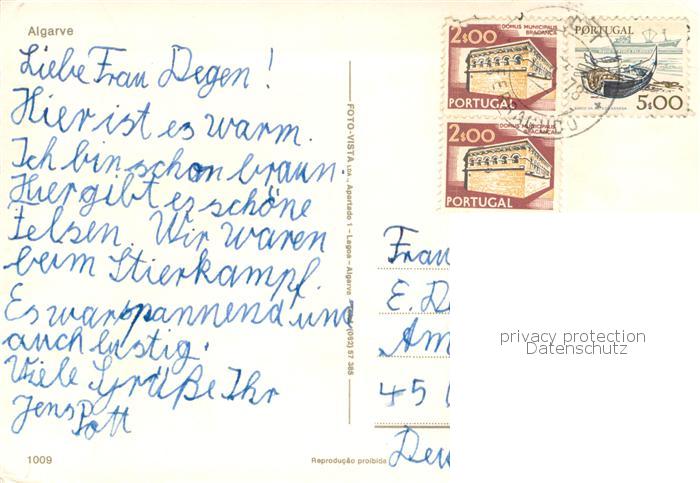 Algarve
Liebe Frau Degen!
Hier ist es warm.
Ich bin schon braun.
Hier gibt es schöne
Felsen. Wir waren
beim Stierkampf.
Es war spannend und
auch lustig.
Viele Grüße Ihr
Jens Pott
1009
FOTO-VISTA LDA., Apartado 1 - Lagoa - Algarve (082) 57 385
Reprodução proibida
DOMUS MUNICIPALIS
BRAGANÇA
2$00
PORTUGAL
DOMUS MUNICIPALIS
BRAGANÇA
2$00
PORTUGAL
PORTUGAL
5$00
Frau
E. D
Am
45
Deu
privacy protection
Datenschutz